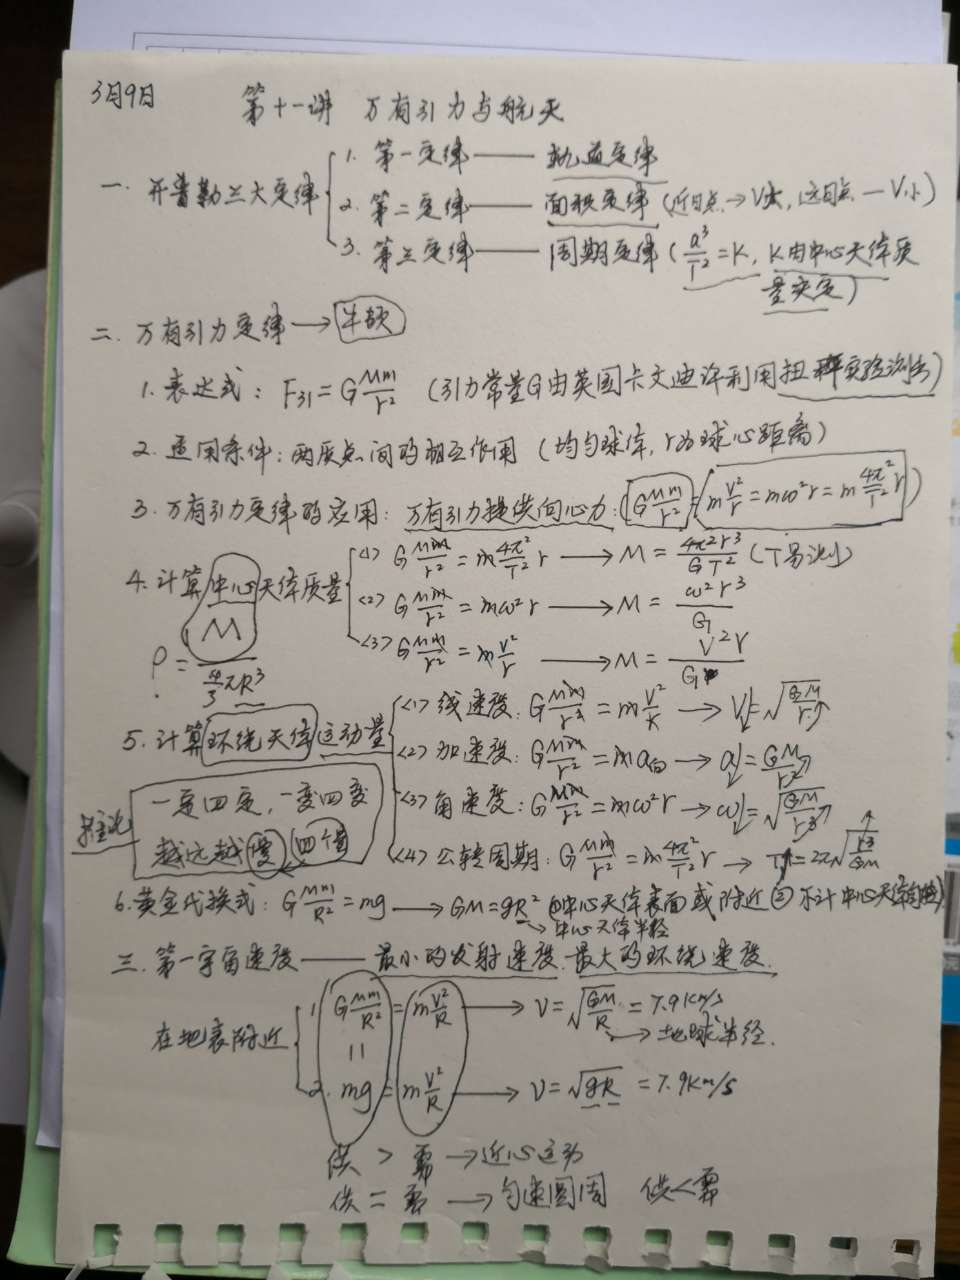 3月9日 第十一讲 万有引力与航天
一. 开普勒三大定律
1. 第一定律——轨道定律
2. 第二定律——面积定律(近日点→V大, 远日点—V小)
3. 第三定律——周期定律(a³/T²=K, K由中心天体质
量决定)
二. 万有引力定律→牛顿
1. 表达式: F引=G Mm/r² (引力常量G由英国卡文迪许利用扭秤实验测出)
2. 适用条件: 两质点间的相互作用 (均匀球体, r为球心距离)
3. 万有引力定律的应用: 万有引力提供向心力: G Mm/r² = m v²/r = mω²r = m 4π²/T² r
4. 计算中心天体质量
<1> G Mm/r² = m 4π²/T² r → M = 4π²r³/GT² (T易测)
<2> G Mm/r² = mω²r → M = ω²r³/G
<3> G Mm/r² = m v²/r → M = V²r/G
ρ = M / (4/3 πR³)
5. 计算环绕天体运动量
<1> 线速度: G Mm/r² = m V²/r → V↓=√(GM/r↗)
<2> 加速度: G Mm/r² = m a向 → a↓=GM/r²↗
<3> 角速度: G Mm/r² = mω²r → ω↓=√(GM/r³↗)
<4> 公转周期: G Mm/r² = m 4π²/T² r → T↑=2π√(r³↑/GM)
一定四定, 一变四变
越远越慢 (四个量)
6. 黄金代换式: G Mm/R² = mg → GM=gR² ①中心天体表面或附近 ②不计中心天体自转
→中心天体半径
三. 第一宇宙速度——最小的发射速度. 最大的环绕速度.
在地表附近
1. G Mm/R² = m V²/R → V=√(GM/R) = 7.9Km/s
→地球半径.
||
2. mg = m V²/R → V=√gR = 7.9Km/s
供 > 需 →近心运动
供 = 需 →匀速圆周 供<需